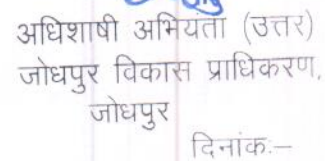 अधिशाषी अभियंता (उत्तर)
जोधपुर विकास प्राधिकरण,
जोधपुर
दिनांक:–